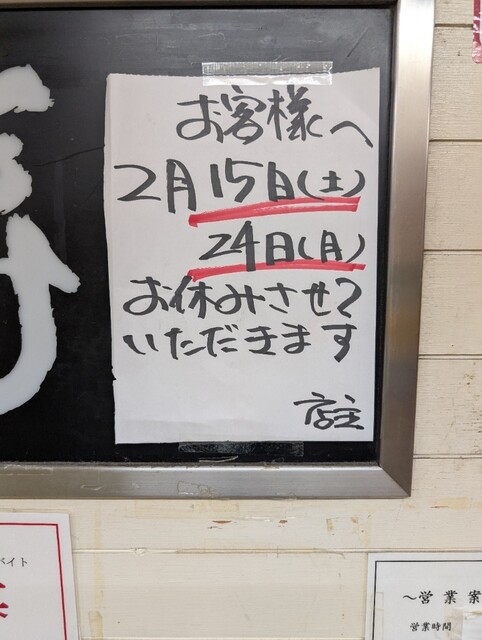 お客様へ
2月15日(土)
24日(月)
お休みさせて
いただきます
店主
バイト
〜営業案
営業時間